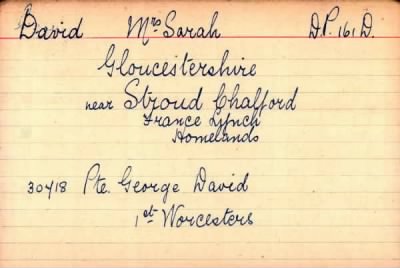 David Mrs Sarah D.P. 161 D.
Gloucestershire
near Stroud Chalford
France Lynch
Homelands
30418 Pte. George David
1st Worcesters